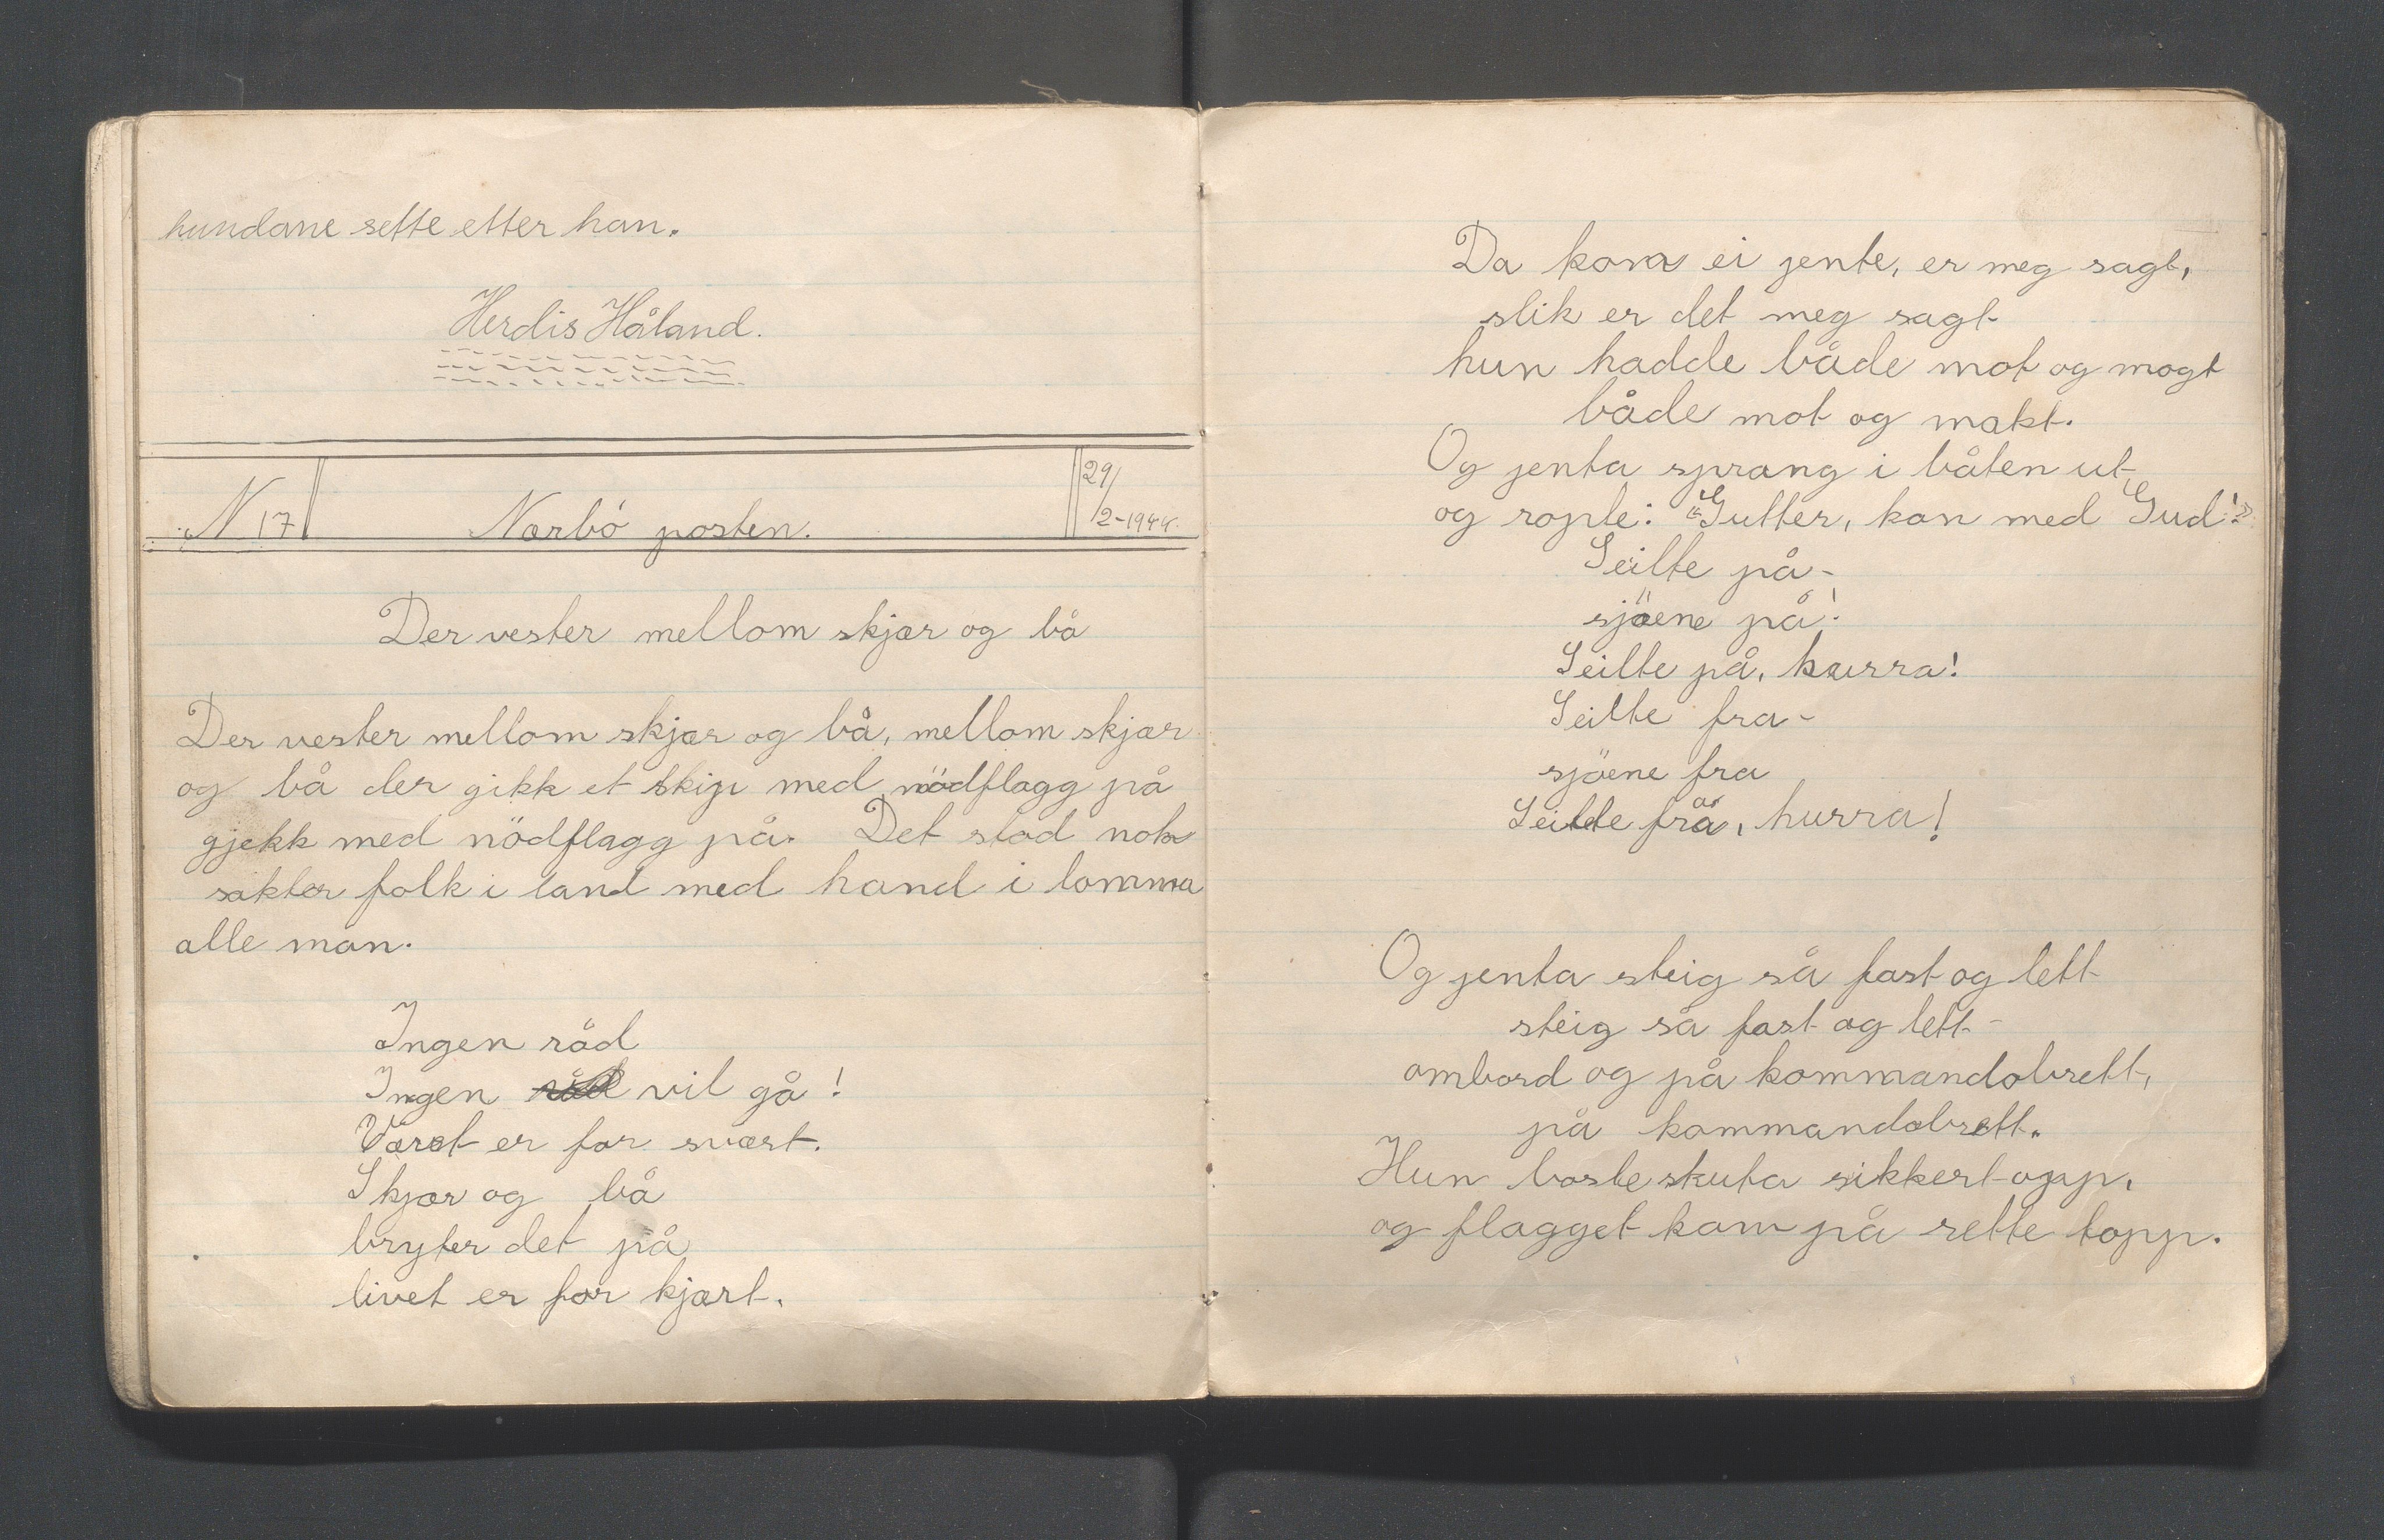 hundane sette etter han.
Herdis Håland.
N 17
Nærbö posten.
29/2-1944.
Der vester mellom skjær og bå
Der vester mellom skjær og bå, mellom skjær
og bå der gikk et skip med nödflagg på
gjekk med nödflagg på. Det stod nok
sakter folk i land med hand i lomma
alle man.
Ingen råd
Ingen råd vil gå!
Været er for svært.
Skjær og bå
bryter det på
livet er for kjært.
Da kom ei jente, er meg sagt,
slik er det meg sagt
hun hadde både mot og magt
både mot og makt.
Og jenta sprang i båten ut
og ropte: "Gutter, kom med Gud!"
Seilte på-
sjöene på!
Seilte på, hurra!
Seilte fra-
sjöene fra
Seilte fra, hurra!
Og jenta steig så fast og lett
steig så fast og lett-
ombord og på kommandobrett,
på kommandobrett.
Hun baste skuta sikkert opp,
og flagget kom på rette topp.